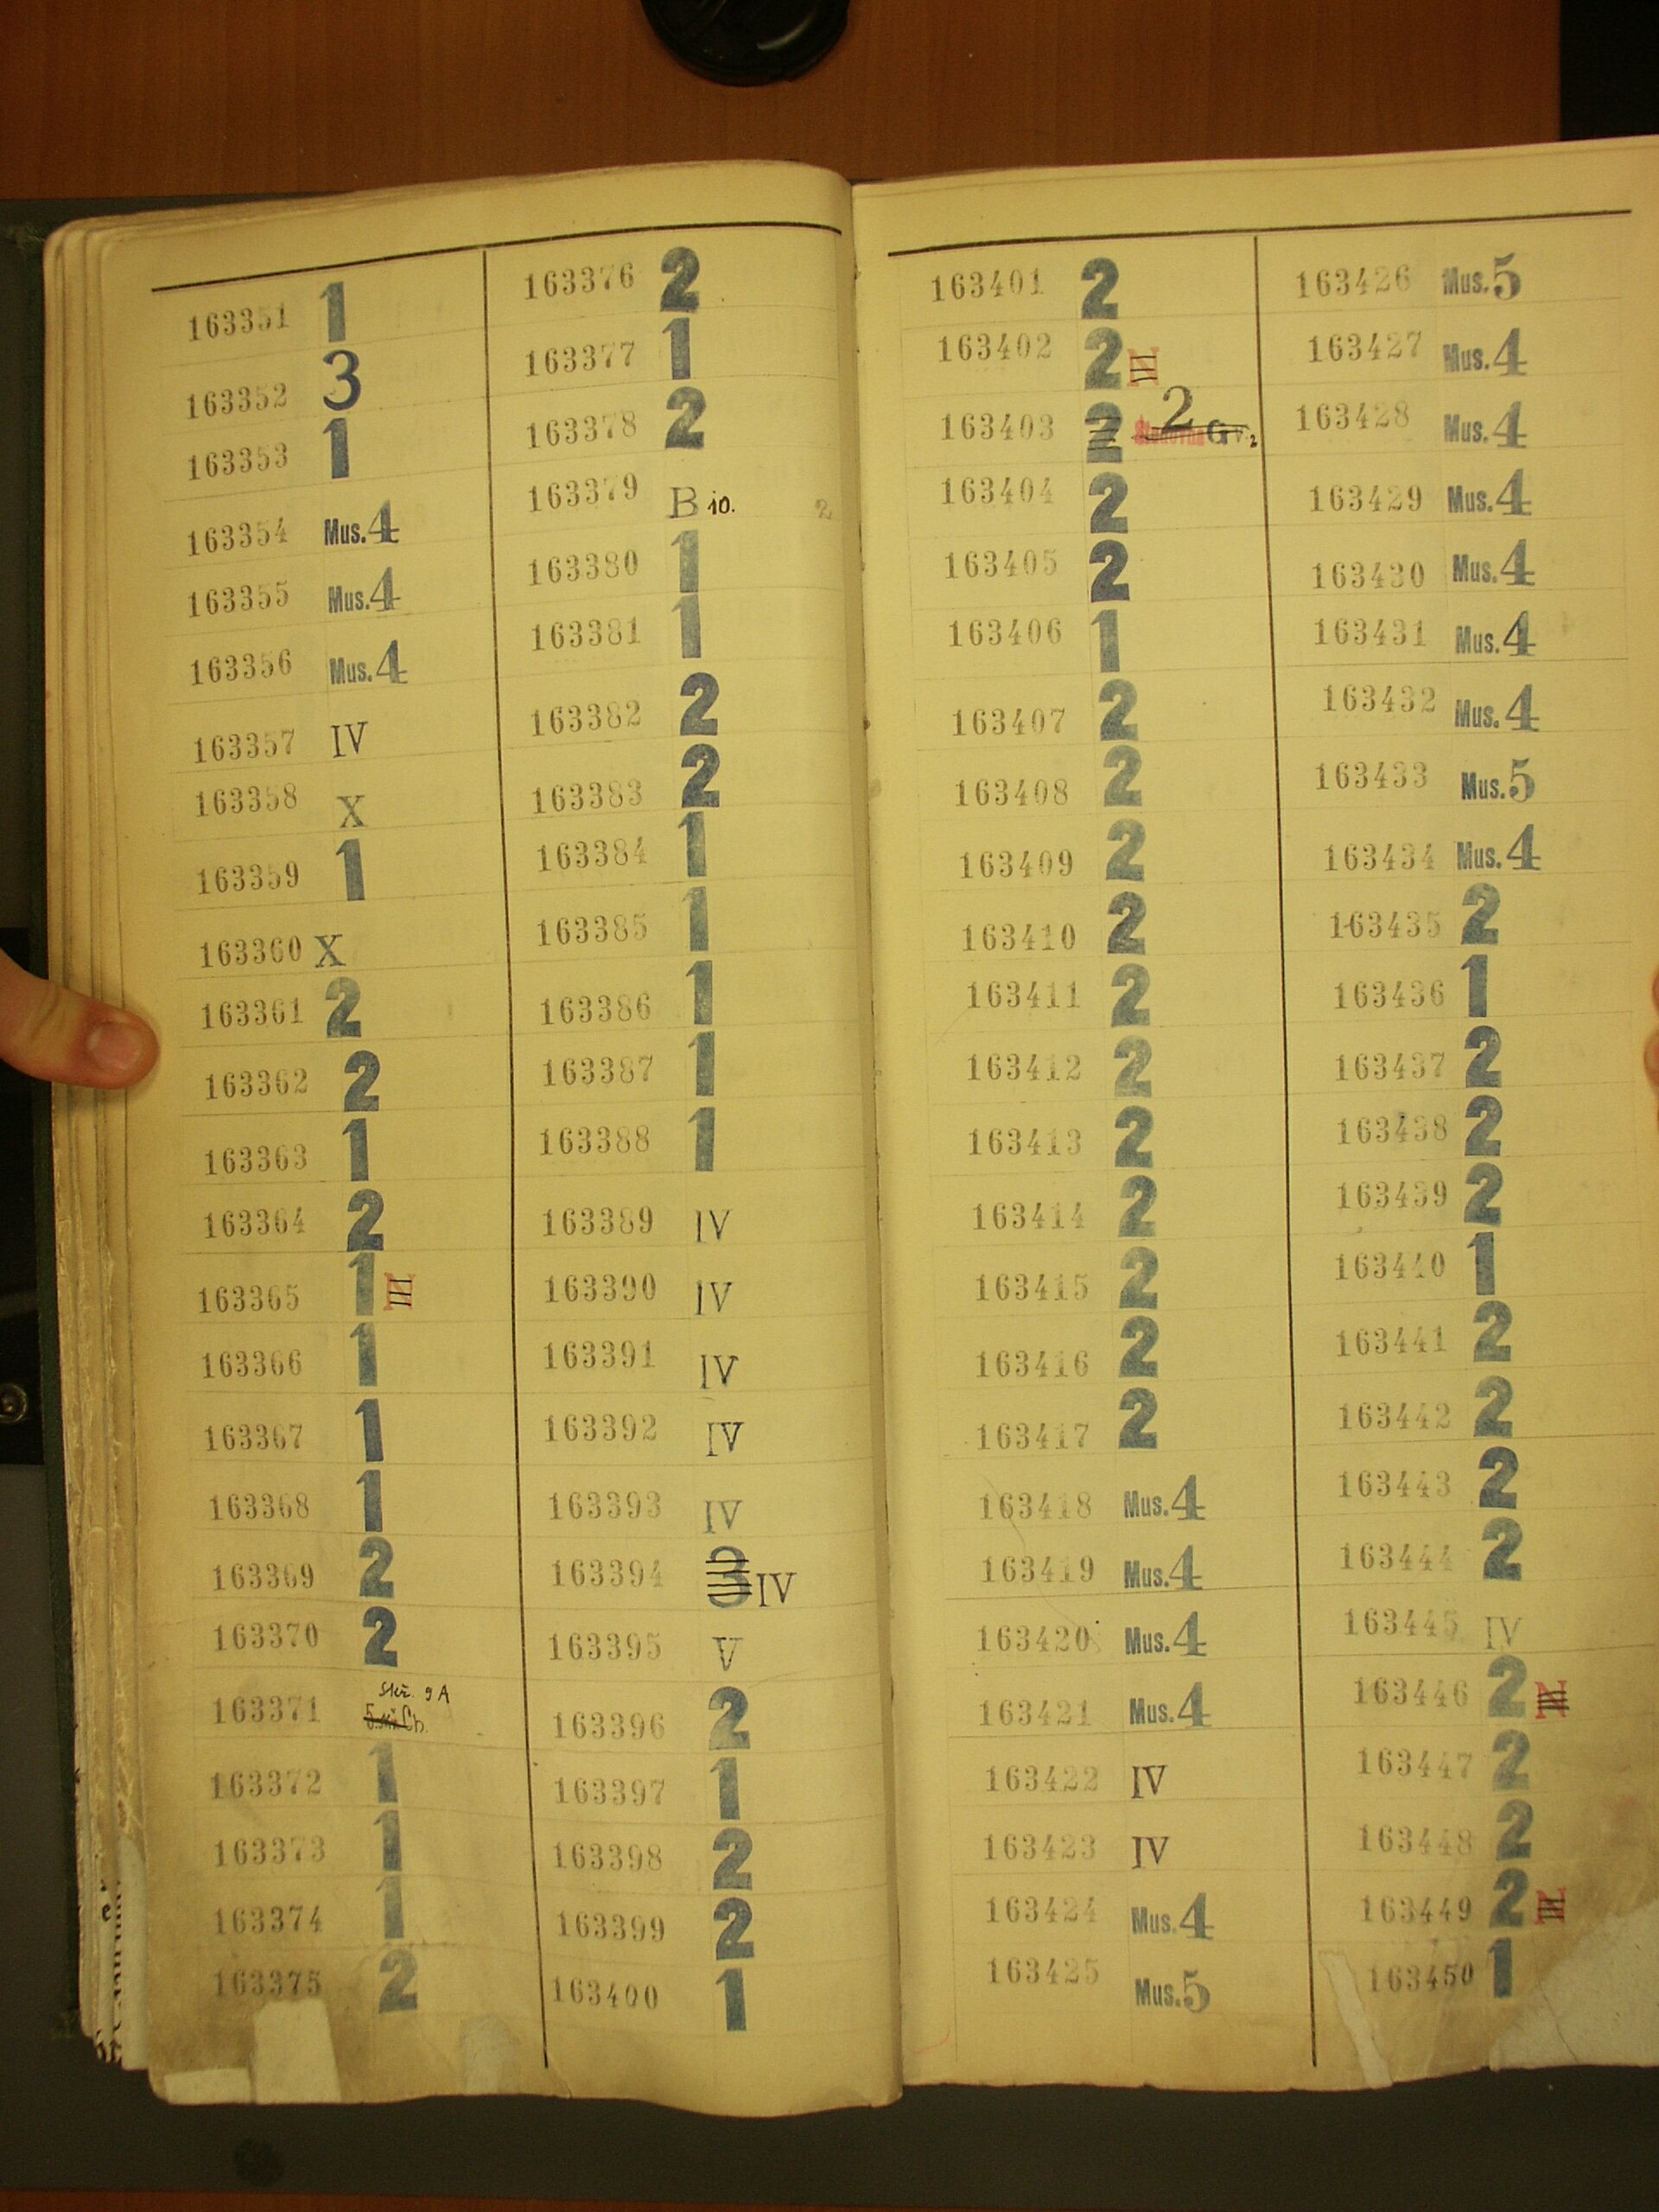 163351 1
163352 3
163353 1
163354 Mus. 4
163355 Mus. 4
163356 Mus. 4
163357 IV
163358 X
163359 1
163360 X
163361 2
163362 2
163363 1
163364 2
163365 1 N
163366 1
163367 1
163368 1
163369 2
163370 2
Skř. 9A
163371 Ch.
163372 1
163373 1
163374 1
163375 2
163376 2
163377 1
163378 2
163379 B io. 2
163380 1
163381 1
163382 2
163383 2
163384 1
163385 1
163386 1
163387 1
163388 1
163389 IV
163390 IV
163391 IV
163392 IV
163393 IV
163394 3 IV
163395 V
163396 2
163397 1
163398 2
163399 2
163400 1
163401 2
163402 2 N
163403 2 2
163404 2
163405 2
163406 1
163407 2
163408 2
163409 2
163410 2
163411 2
163412 2
163413 2
163414 2
163415 2
163416 2
163417 2
163418 Mus. 4
163419 Mus. 4
163420 Mus. 4
163421 Mus. 4
163422 IV
163423 IV
163424 Mus. 4
163425 Mus. 5
163426 Mus. 5
163427 Mus. 4
163428 Mus. 4
163429 Mus. 4
163430 Mus. 4
163431 Mus. 4
163432 Mus. 4
163433 Mus. 5
163434 Mus. 4
163435 2
163436 1
163437 2
163438 2
163439 2
163440 1
163441 2
163442 2
163443 2
163444 2
163445 IV
163446 2 N
163447 2
163448 2
163449 2 N
163450 1